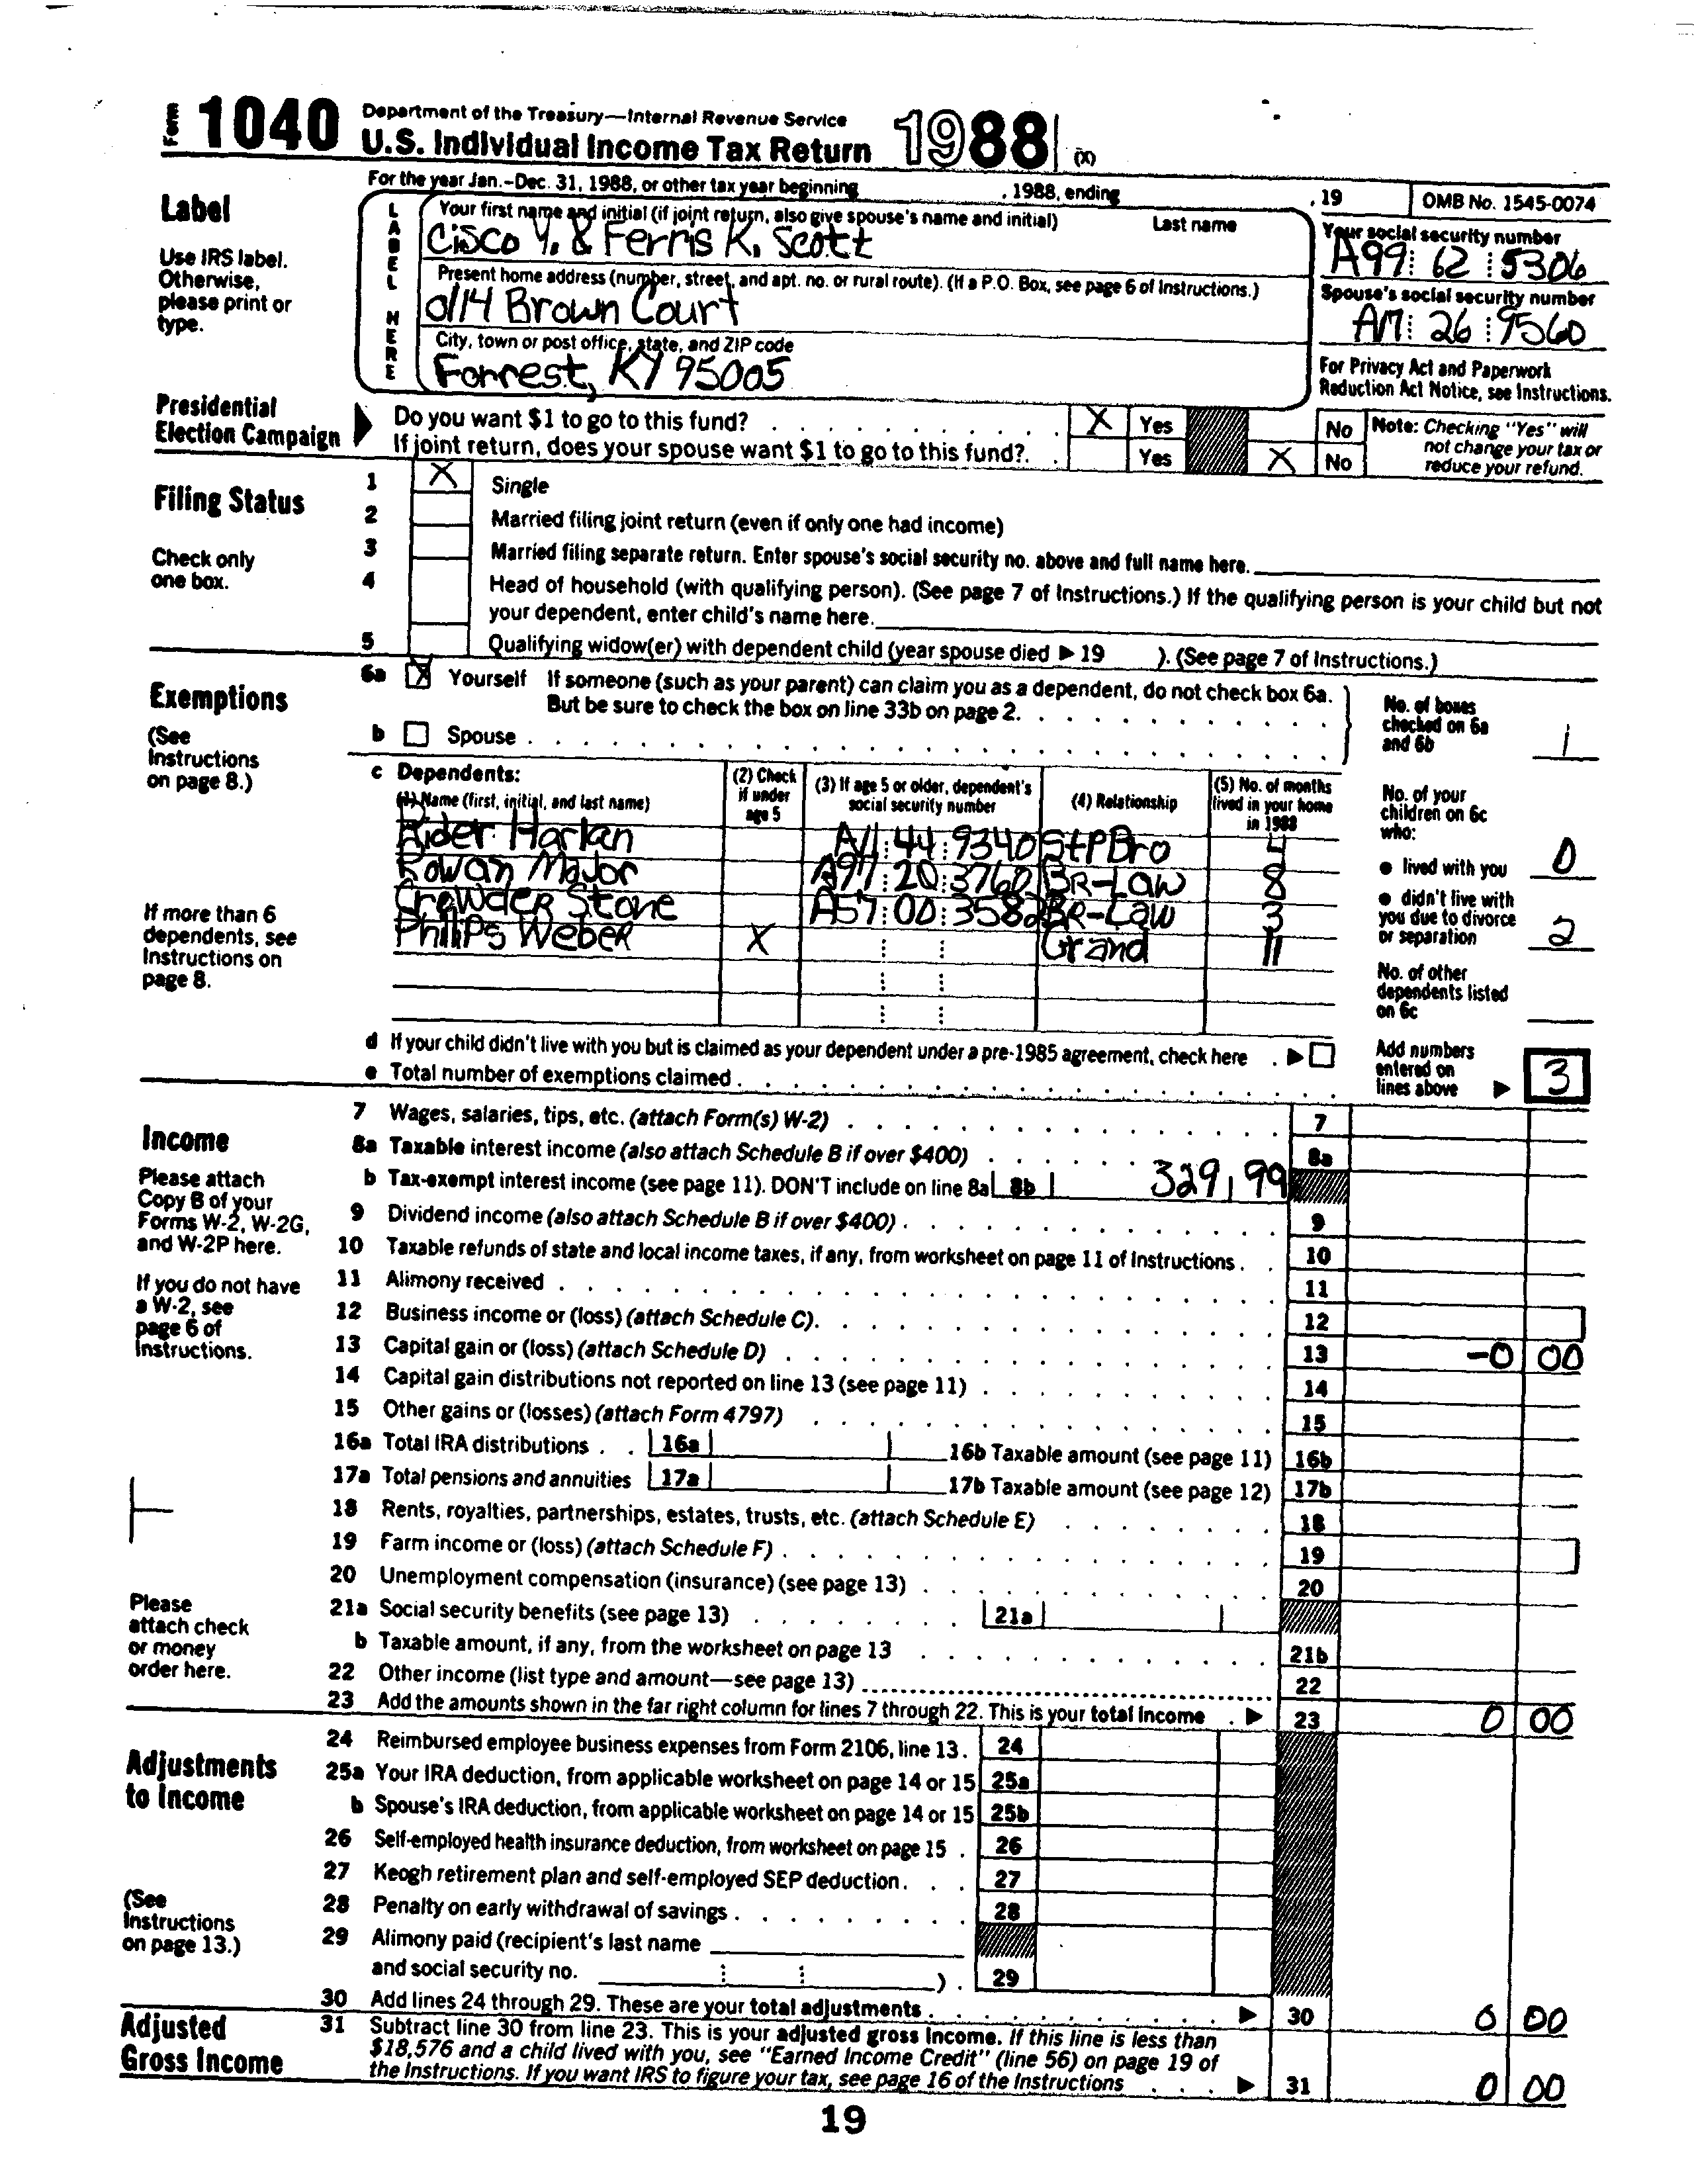 Form 1040 Department of the Treasury—Internal Revenue Service
U.S. Individual Income Tax Return 1988 (X)
For the year Jan.–Dec. 31, 1988, or other tax year beginning , 1988, ending , 19 OMB No. 1545-0074
Label
Use IRS label. Otherwise, please print or type.
LABEL HERE
Your first name and initial (if joint return, also give spouse's name and initial) Last name
Cisco Y. & Ferris K. Scott
Your social security number
A99 62 5306
Present home address (number, street, and apt. no. or rural route). (If a P.O. Box, see page 6 of Instructions.)
0114 Brown Court
Spouse's social security number
A17 26 9560
City, town or post office, state, and ZIP code
Forrest, KY 95005
For Privacy Act and Paperwork Reduction Act Notice, see Instructions.
Presidential Election Campaign
Do you want $1 to go to this fund? X Yes No
If joint return, does your spouse want $1 to go to this fund? Yes X No
Note: Checking "Yes" will not change your tax or reduce your refund.
Filing Status
Check only one box.
1 X Single
2 Married filing joint return (even if only one had income)
3 Married filing separate return. Enter spouse's social security no. above and full name here.
4 Head of household (with qualifying person). (See page 7 of Instructions.) If the qualifying person is your child but not
your dependent, enter child's name here.
5 Qualifying widow(er) with dependent child (year spouse died ▶ 19 ). (See page 7 of Instructions.)
Exemptions
(See Instructions on page 8.)
6a X Yourself If someone (such as your parent) can claim you as a dependent, do not check box 6a.
But be sure to check the box on line 33b on page 2.
b Spouse
No. of boxes checked on 6a and 6b 1
c Dependents:
(1) Name (first, initial, and last name) (2) Check if under age 5 (3) If age 5 or older, dependent's social security number (4) Relationship (5) No. of months lived in your home in 1988
Rider Harlan A11 44 9340 StPBro 4
Rowan Major A97 20 3760 BR-Law 8
Crowder Stone A57 00 3582 BR-Law 3
Philips Weber X Grand 11
If more than 6 dependents, see Instructions on page 8.
No. of your children on 6c who:
● lived with you 0
● didn't live with you due to divorce or separation 2
No. of other dependents listed on 6c
d If your child didn't live with you but is claimed as your dependent under a pre-1985 agreement, check here ▶
e Total number of exemptions claimed
Add numbers entered on lines above ▶ 3
Income
Please attach Copy B of your Forms W-2, W-2G, and W-2P here.
If you do not have a W-2, see page 6 of Instructions.
7 Wages, salaries, tips, etc. (attach Form(s) W-2) 7
8a Taxable interest income (also attach Schedule B if over $400) 8a
b Tax-exempt interest income (see page 11). DON'T include on line 8a 8b 329 99
9 Dividend income (also attach Schedule B if over $400) 9
10 Taxable refunds of state and local income taxes, if any, from worksheet on page 11 of Instructions 10
11 Alimony received 11
12 Business income or (loss) (attach Schedule C) 12
13 Capital gain or (loss) (attach Schedule D) 13 -0 00
14 Capital gain distributions not reported on line 13 (see page 11) 14
15 Other gains or (losses) (attach Form 4797) 15
16a Total IRA distributions 16a 16b Taxable amount (see page 11) 16b
17a Total pensions and annuities 17a 17b Taxable amount (see page 12) 17b
18 Rents, royalties, partnerships, estates, trusts, etc. (attach Schedule E) 18
19 Farm income or (loss) (attach Schedule F) 19
20 Unemployment compensation (insurance) (see page 13) 20
21a Social security benefits (see page 13) 21a
b Taxable amount, if any, from the worksheet on page 13 21b
22 Other income (list type and amount—see page 13) 22
23 Add the amounts shown in the far right column for lines 7 through 22. This is your total income ▶ 23 0 00
Please attach check or money order here.
Adjustments to Income
(See Instructions on page 13.)
24 Reimbursed employee business expenses from Form 2106, line 13. 24
25a Your IRA deduction, from applicable worksheet on page 14 or 15 25a
b Spouse's IRA deduction, from applicable worksheet on page 14 or 15 25b
26 Self-employed health insurance deduction, from worksheet on page 15 26
27 Keogh retirement plan and self-employed SEP deduction 27
28 Penalty on early withdrawal of savings 28
29 Alimony paid (recipient's last name
and social security no. ) 29
30 Add lines 24 through 29. These are your total adjustments ▶ 30 0 00
Adjusted Gross Income
31 Subtract line 30 from line 23. This is your adjusted gross income. If this line is less than
$18,576 and a child lived with you, see "Earned Income Credit" (line 56) on page 19 of
the Instructions. If you want IRS to figure your tax, see page 16 of the Instructions ▶ 31 0 00
19